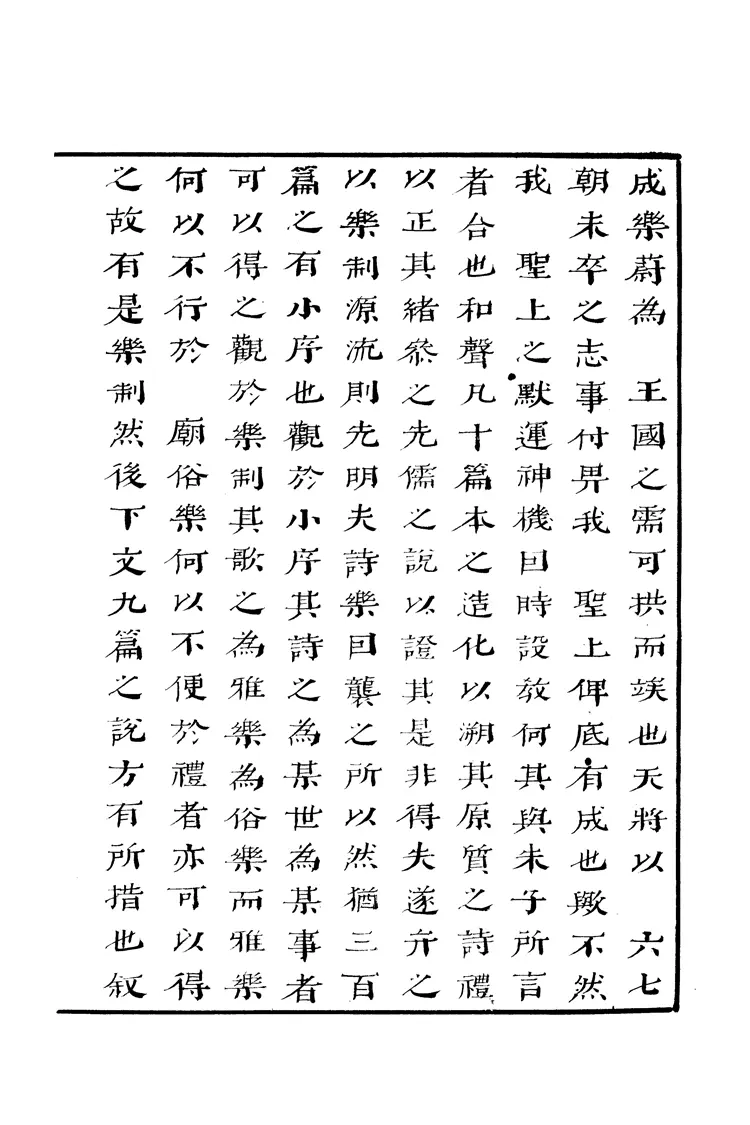 成樂蔚為　王國之需可拱而竢也天將以　六七
朝未卒之志事付畀我　聖上俾底有成也歟不然
我　聖上之默運神機因時設教何其與朱子所言
者合也和聲凡十篇本之造化以溯其原質之詩禮
以正其緒叅之先儒之說以證其是非得失遂弁之
以樂制源流則先明夫詩樂因襲之所以然猶三百
篇之有小序也觀於小序其詩之為某世為某事者
可以得之觀於樂制其歌之為雅樂為俗樂而雅樂
何以不行於　廟俗樂何以不便於禮者亦可以得
之故有是樂制然後下文九篇之說方有所措也叙